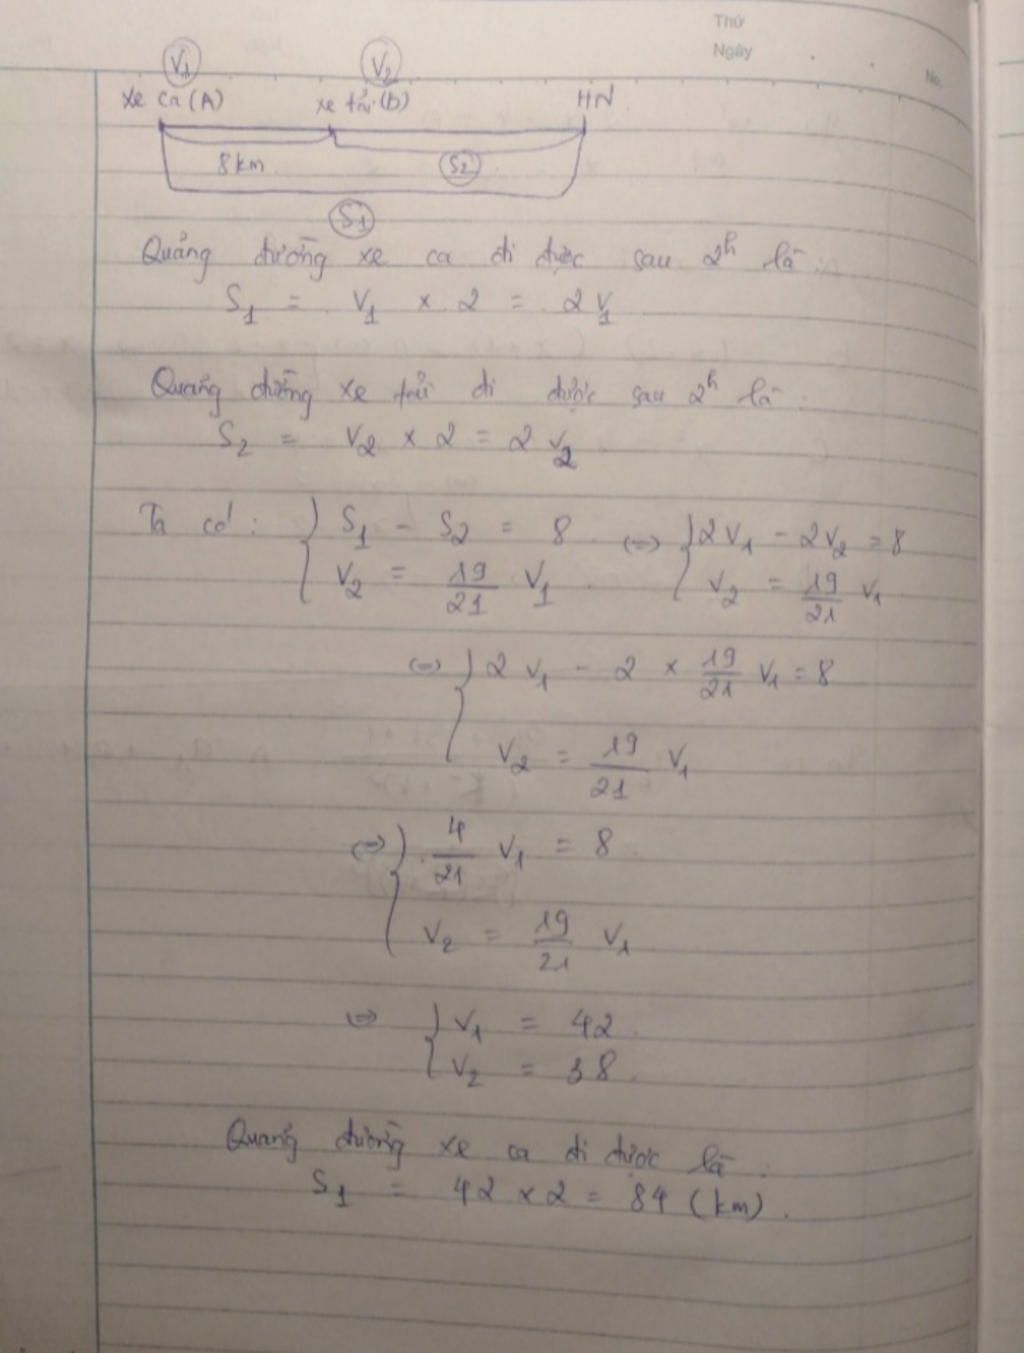 Thứ
Ngày
No.
V1 V2
xe ca (A) xe tải (B) HN
8km S2
S1
Quảng đường xe ca đi được sau 2h là :
S1 = V1 x 2 = 2 V1
Quảng đường xe tải đi được sau 2h là :
S2 = V2 x 2 = 2 V2
Ta có : { S1 - S2 = 8 <=> { 2V1 - 2V2 = 8
V2 = 19/21 V1 V2 = 19/21 V1
<=> { 2 V1 - 2 x 19/21 V1 = 8
V2 = 19/21 V1
<=> { 4/21 V1 = 8
V2 = 19/21 V1
<=> { V1 = 42
V2 = 38
Quảng đường xe ca đi được là :
S1 = 42 x 2 = 84 (km).